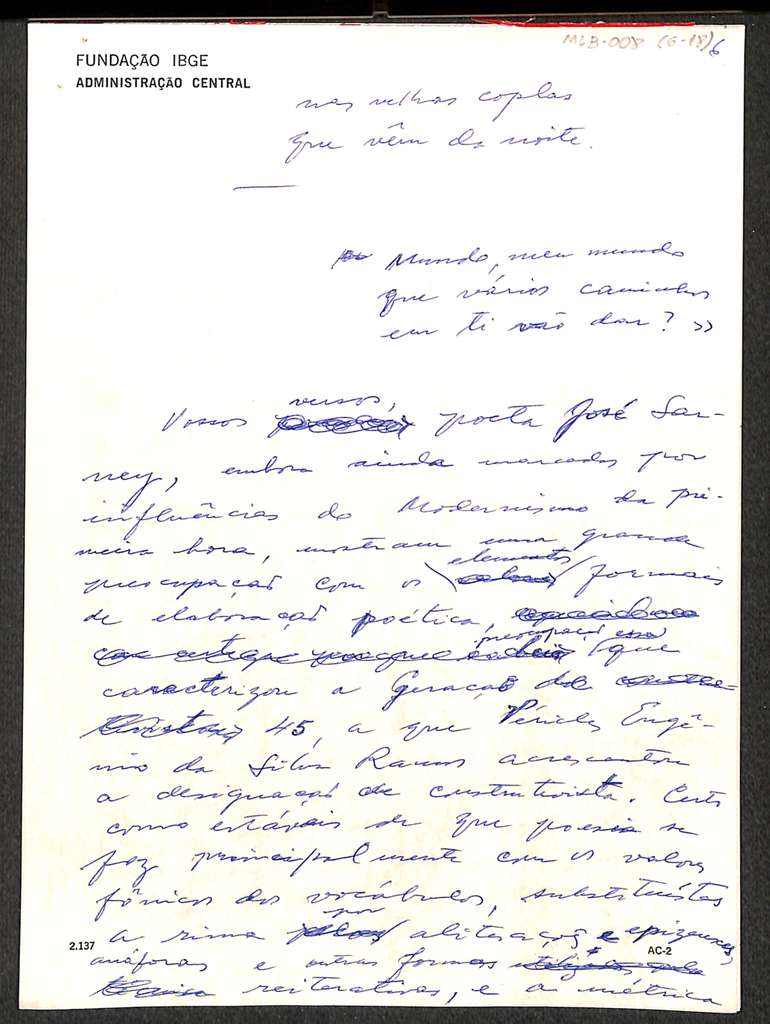 MLB-008 (6-18) 6
FUNDAÇÃO IBGE
ADMINISTRAÇÃO CENTRAL
nas velhas coplas
que vêm da noite.
Mundo, meu mundo
que vários caminhos
em ti vão dar? >>
versos,
Vossos poeta José Sar-
ney, embora ainda marcados por
influências do Modernismo da pri-
meira hora, mostram uma grande
elementos
preocupação com os formais
de elaboração poética,
preocupação essa
que
caracterizou a Geração de
45, a que Péricles Eugê-
nio da Silva Ramos acrescentou
a designação de construtivista. Certo
como estáveis de que poesia se
faz principalmente com os valores
fônicos dos vocábulos, substituístes
por
a rima aliterações e epizeuxes,
2.137
AC-2
anáforas e outras formas
reiterativas, e a métrica